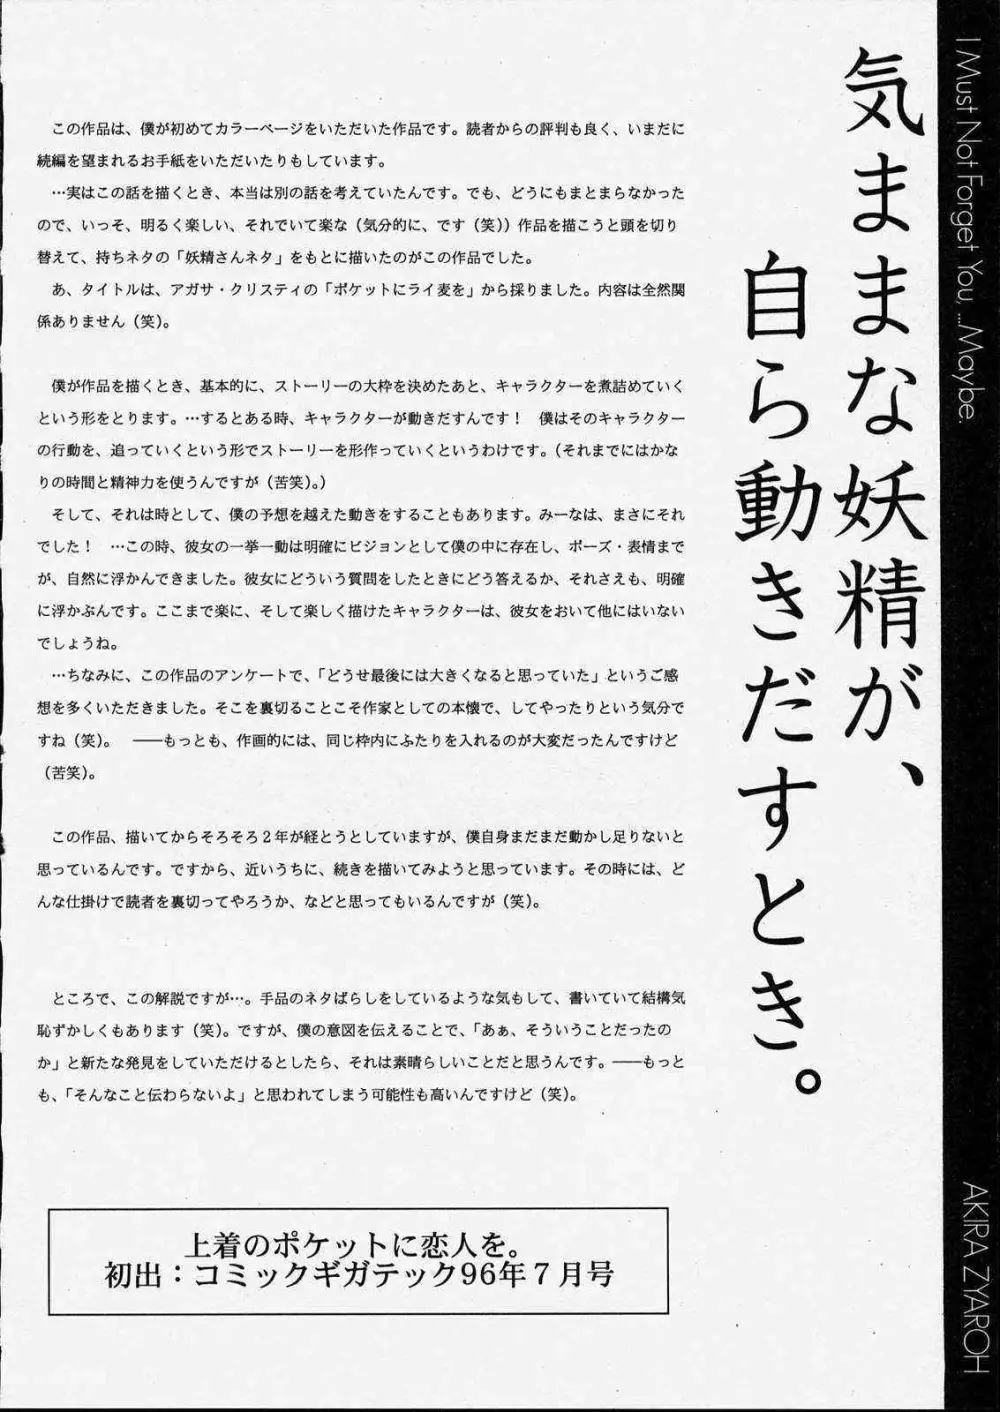 I Must Not Forget You, ...Maybe.
気ままな妖精が、
自ら動きだすとき。
この作品は、僕が初めてカラーページをいただいた作品です。読者からの評判も良く、いまだに
続編を望まれるお手紙をいただいたりもしています。
…実はこの話を描くとき、本当は別の話を考えていたんです。でも、どうにもまとまらなかった
ので、いっそ、明るく楽しい、それでいて楽な（気分的に、です（笑））作品を描こうと頭を切り
替えて、持ちネタの「妖精さんネタ」をもとに描いたのがこの作品でした。
あ、タイトルは、アガサ・クリスティの「ポケットにライ麦を」から採りました。内容は全然関
係ありません（笑）。
僕が作品を描くとき、基本的に、ストーリーの大枠を決めたあと、キャラクターを煮詰めていく
という形をとります。…するとある時、キャラクターが動きだすんです！　僕はそのキャラクター
の行動を、追っていくという形でストーリーを形作っていくというわけです。（それまでにはかな
りの時間と精神力を使うんですが（苦笑）。）
そして、それは時として、僕の予想を越えた動きをすることもあります。みーなは、まさにそれ
でした！　…この時、彼女の一挙一動は明確にビジョンとして僕の中に存在し、ポーズ・表情まで
が、自然に浮かんできました。彼女にどういう質問をしたときにどう答えるか、それさえも、明確
に浮かぶんです。ここまで楽に、そして楽しく描けたキャラクターは、彼女をおいて他にはいない
でしょうね。
…ちなみに、この作品のアンケートで、「どうせ最後には大きくなると思っていた」というご感
想を多くいただきました。そこを裏切ることこそ作家としての本懐で、してやったりという気分で
すね（笑）。　――もっとも、作画的には、同じ枠内にふたりを入れるのが大変だったんですけど
（苦笑）。
この作品、描いてからそろそろ２年が経とうとしていますが、僕自身まだまだ動かし足りないと
思っているんです。ですから、近いうちに、続きを描いてみようと思っています。その時には、ど
んな仕掛けで読者を裏切ってやろうか、などと思ってもいるんですが（笑）。
ところで、この解説ですが…。手品のネタばらしをしているような気もして、書いていて結構気
恥ずかしくもあります（笑）。ですが、僕の意図を伝えることで、「あぁ、そういうことだったの
か」と新たな発見をしていただけるとしたら、それは素晴らしいことだと思うんです。――もっと
も、「そんなこと伝わらないよ」と思われてしまう可能性も高いんですけど（笑）。
上着のポケットに恋人を。
初出：コミックギガテック96年７月号
AKIRA ZYAROH